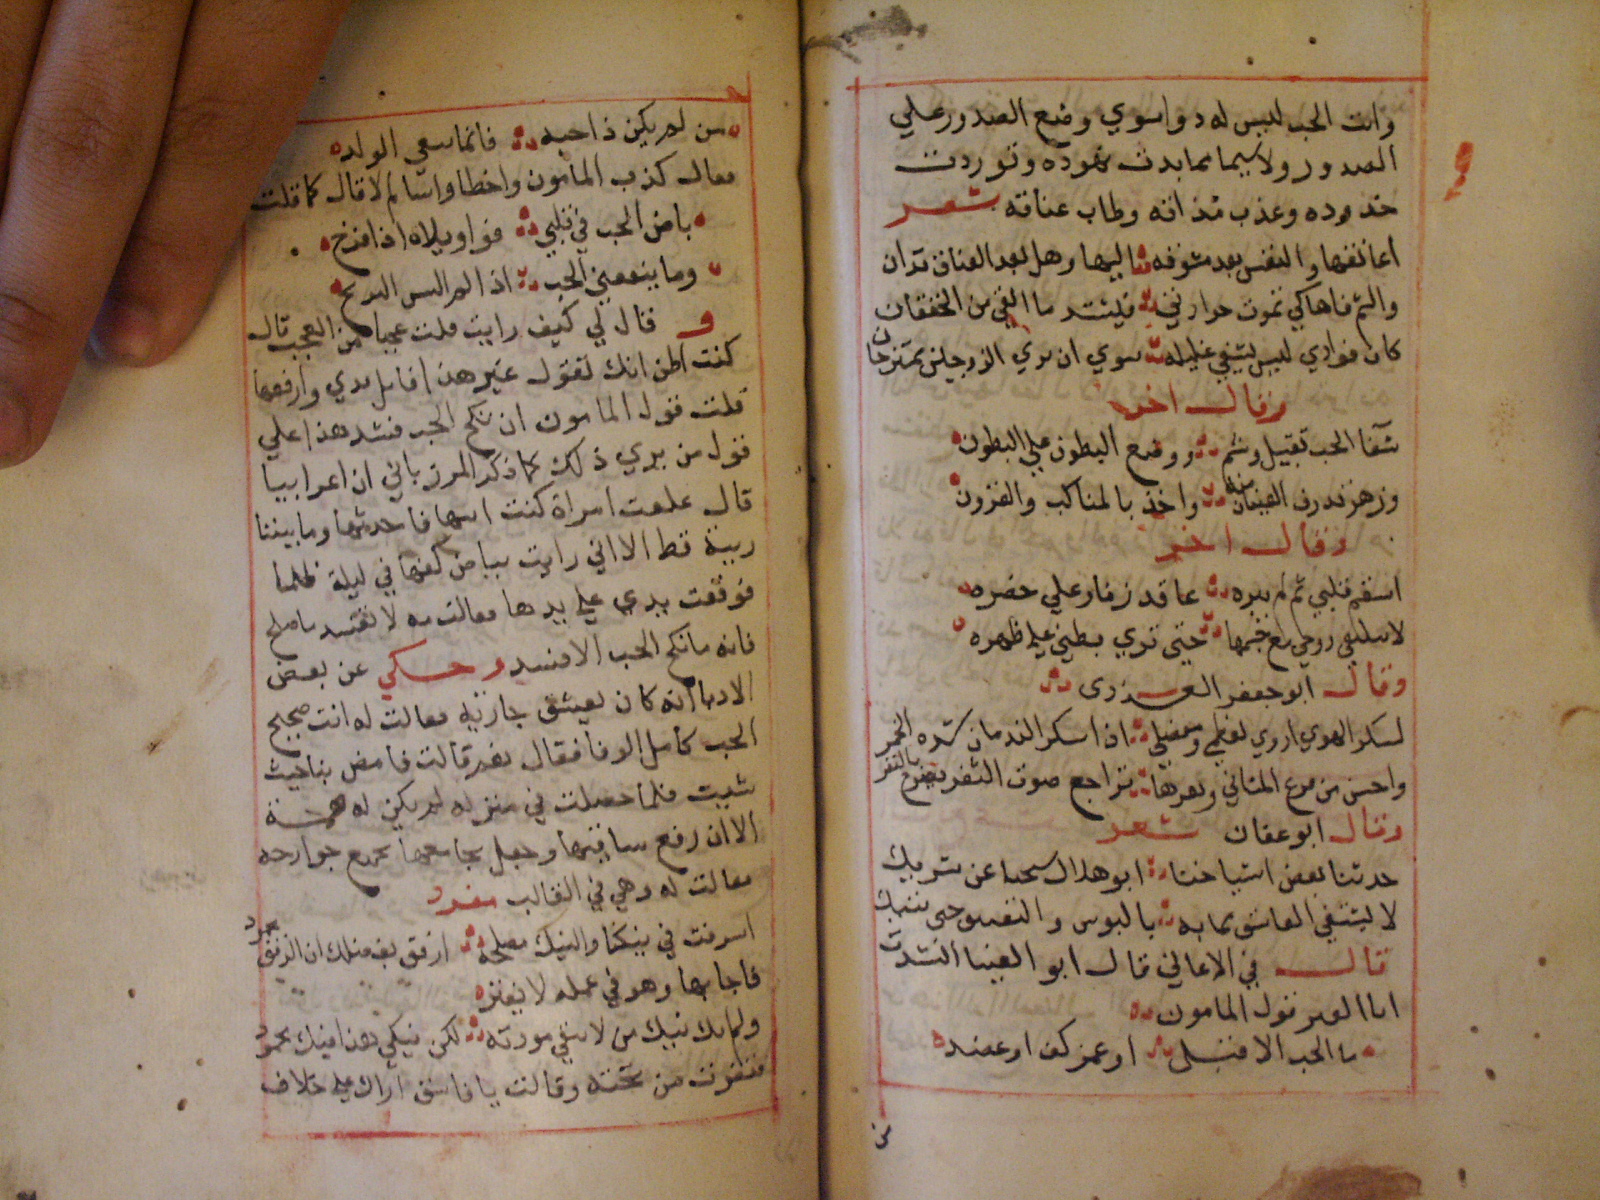 وانت الحب ليس له دوا سوي وضع الصدور علي
الصدور ولا سيما بدت نهوده وتوردت
خدوده وعذب مذاقه وطاب عناقه شعر
اعانقها والنفس بعد مشوقه اليها وهل بعد العناق تدان
والثم فاها كي تموت حرارتي فيشتد ما القي من الخفقان
كان فوادي ليس يشفي غليله سوي ان يري الزوجين يمتزجان
وقال اخر
شفا الحب تقبيل وشم ووضع البطون علي البطون
ورهز تذرف العينان منه واخذ بالمناكب والقرون
وقال اخر
اسقم قلبي ثم لم يبره عاقد زنار علي خصره
حتي تري بطني علي ظهره
وقال ابو جعفر العـــذري
لسكر الهوي اروي لعظمي ومفصلي اذا سكر الندمان من الخمر
واحسن من قرع المثاني ونقرها تراجع صوت الثغر يقرع بالثغر
وقال ابو عفان شعر
حدثنا بعض اشياخنا ابو هلال عن شريك
لا يشتفي العاشق مما به بالبوس والتقبيل حتي ينيك
قال في الاغاني قال ابو العينا انشدت
ابا العبر قول المامون
ما الحب الا قبل او غمز كف او عضد
من
من لم يكن ذا حبه فانما يبغي الولد
فقال كذب المامون واخطا واسا لم لا قال كما قلت
باض الحب في قلبي فواويلاه اذا فرخ
وما ينفعني الحب اذا لم
و قال لي كيف رايت قلت عجبا من العجب قال
كنت اظن انك تقول غير هذا فابل يدي وارفعها
قلت قول المامون ان نكح الحب فسد هذا علي
قول من يري ذلك كما ذكر المرزباني ان اعرابيا
قال علقت امراة كنت اتيها فاحدثها وما بيننا
ريبة قط الا اني رايت بياض كفها في ليلة ظلما
فوقعت يدي علي يدها فقالت مه لا تفسد ما صلح
فانه ما نكح الحب الا فسد وحـــكي عن بعض
الادبا انه كان يعشق جارية فقالت له انت صحيح
الحب كامل الوفا فقال نعم قالت فامض بنا حيث
شيت فلما حصلت في منزله لم يكن له همـــة
الا ان رفع ساقيها وجعل يجامعها بجميع جوارحه
فقالت له وهي في الغالب مفرد
اسرفت في نيكنا والنيك مصلحة ارفق بفضلك ان الرفق محمود
فاجابها وهو في عمله لا يفتر
ولم انك نيك من لا تبقي مودته لكن نيكي هذا نيك مجهود
فنفرت من تحته وقالت يا فاسق اراك علي خلاف